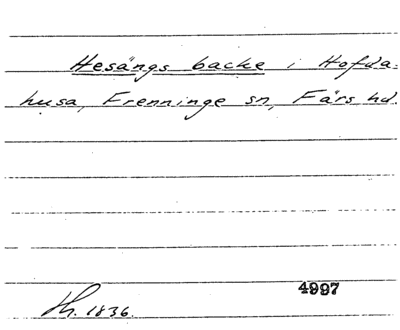 Hesängs backe i Hofda-
husa, Frenninge sn, Färs hd.
4997
Th. 1836.